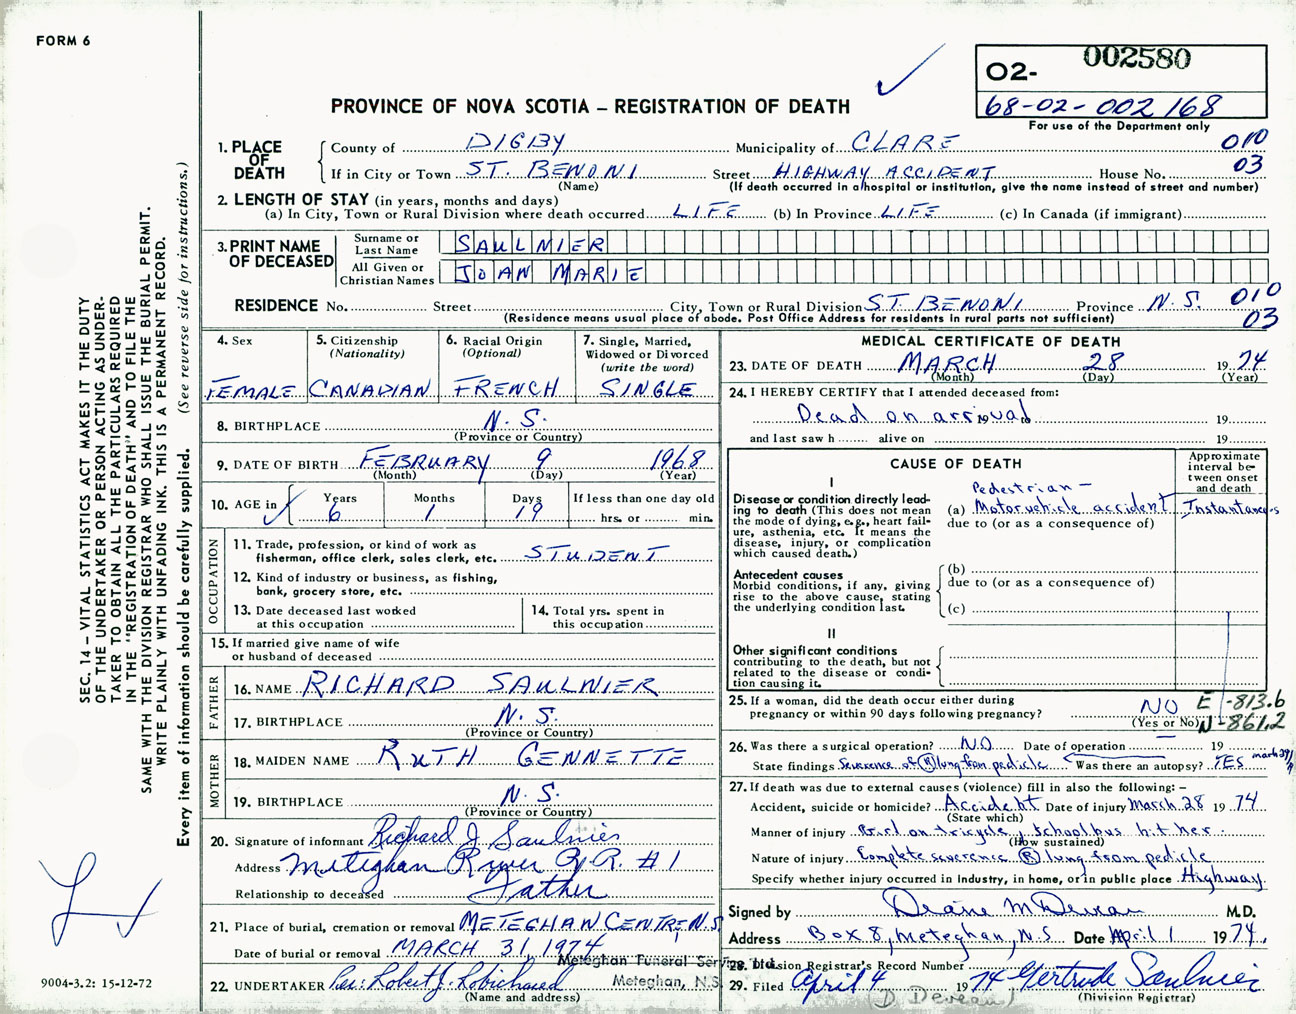 FORM 6
002580
O2-
68-02-002168
For use of the Department only
PROVINCE OF NOVA SCOTIA – REGISTRATION OF DEATH
1. PLACE OF DEATH
County of DIGBY Municipality of CLARE 010
If in City or Town ST. BENONI Street HIGHWAY ACCIDENT House No. 03
(Name) (If death occurred in a hospital or institution, give the name instead of street and number)
2. LENGTH OF STAY (in years, months and days)
(a) In City, Town or Rural Division where death occurred LIFE (b) In Province LIFE (c) In Canada (if immigrant)
3. PRINT NAME OF DECEASED
Surname or Last Name SAULNIER
All Given or Christian Names JOAN MARIE
RESIDENCE No. Street City, Town or Rural Division ST. BENONI Province N.S. 010
(Residence means usual place of abode. Post Office Address for residents in rural parts not sufficient) 03
4. Sex
FEMALE
5. Citizenship
(Nationality)
CANADIAN
6. Racial Origin
(Optional)
FRENCH
7. Single, Married,
Widowed or Divorced
(write the word)
SINGLE
8. BIRTHPLACE N.S.
(Province or Country)
9. DATE OF BIRTH FEBRUARY 9 1968
(Month) (Day) (Year)
10. AGE in Years Months Days If less than one day old
6 1 19 hrs. or min.
OCCUPATION
11. Trade, profession, or kind of work as
fisherman, office clerk, sales clerk, etc. STUDENT
12. Kind of industry or business, as fishing,
bank, grocery store, etc.
13. Date deceased last worked
at this occupation
14. Total yrs. spent in
this occupation
15. If married give name of wife
or husband of deceased
FATHER
16. NAME RICHARD SAULNIER
17. BIRTHPLACE N.S.
(Province or Country)
MOTHER
18. MAIDEN NAME RUTH GENNETTE
19. BIRTHPLACE N.S.
(Province or Country)
20. Signature of informant Richard J Saulnier
Address Meteghan River R.R. #1
Relationship to deceased Father
21. Place of burial, cremation or removal METEGHAN CENTRE, N.S.
Date of burial or removal MARCH 31, 1974
Meteghan Funeral Service Ltd.
Meteghan, N.S.
22. UNDERTAKER Per: Robert J. Robichaud
(Name and address)
MEDICAL CERTIFICATE OF DEATH
23. DATE OF DEATH MARCH 28 1974
(Month) (Day) (Year)
24. I HEREBY CERTIFY that I attended deceased from:
Dead on arrival 19
and last saw h alive on 19
CAUSE OF DEATH
Approximate
interval be-
tween onset
and death
I
Disease or condition directly lead-
ing to death (This does not mean
the mode of dying, e.g., heart fail-
ure, asthenia, etc. It means the
disease, injury, or complication
which caused death.)
Pedestrian -
(a) Motor vehicle accident
due to (or as a consequence of)
Antecedent causes
Morbid conditions, if any, giving
rise to the above cause, stating
the underlying condition last.
(b)
due to (or as a consequence of)
(c)
II
Other significant conditions
contributing to the death, but not
related to the disease or condi-
tion causing it.
25. If a woman, did the death occur either during
pregnancy or within 90 days following pregnancy? NO
(Yes or No)
E-813.6
N-861.2
26. Was there a surgical operation? NO Date of operation 19
State findings Severence of (R) lung from pedicle Was there an autopsy? YES
27. If death was due to external causes (violence) fill in also the following: –
Accident, suicide or homicide? Accident Date of injury March 28 1974
(State which)
Manner of injury Girl on tricycle, school bus hit her.
(How sustained)
Nature of injury Complete severence (R) lung from pedicle
Specify whether injury occurred in industry, in home, or in public place Highway.
Signed by M.D.
Address Box 8, Meteghan, N.S Date April 1 1974.
28. Division Registrar's Record Number
29. Filed April 4 1974 Gertrude Saulnier
(Division Registrar)
SEC. 14 – VITAL STATISTICS ACT MAKES IT THE DUTY
OF THE UNDERTAKER OR PERSON ACTING AS UNDER-
TAKER TO OBTAIN ALL THE PARTICULARS REQUIRED
IN THE "REGISTRATION OF DEATH" AND TO FILE THE
SAME WITH THE DIVISION REGISTRAR WHO SHALL ISSUE THE BURIAL PERMIT.
WRITE PLAINLY WITH UNFADING INK. THIS IS A PERMANENT RECORD.
Every item of information should be carefully supplied. (See reverse side for instructions.)
9004-3.2: 15-12-72